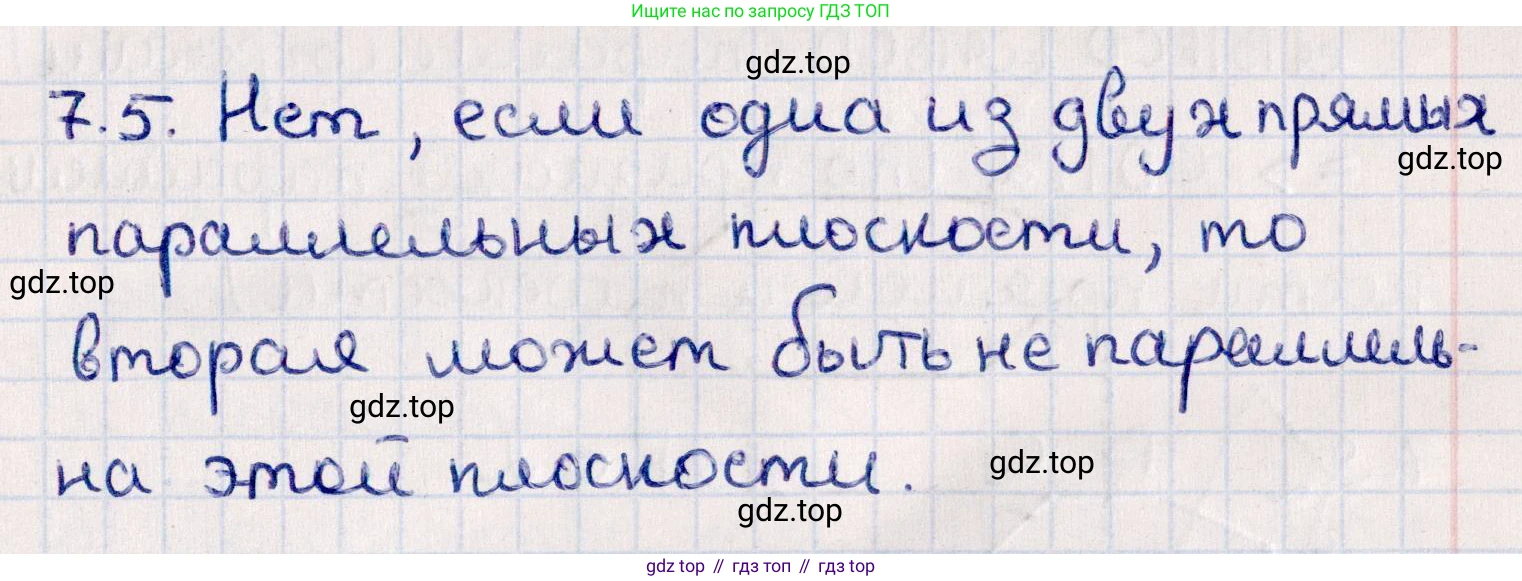 Ищите нас по запросу ГДЗ ТОП
gdz.top
7.5. Нет, если одна из двух прямых
gdz.top
параллельных плоскости, то
gdz.top
вторая может быть не параллель-
gdz.top
на этой плоскости.
gdz.top
gdz.top
gdz top // гдз топ // гдз top